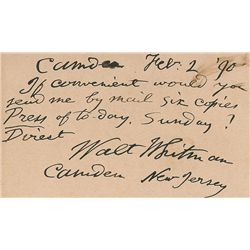 Camden Feb. 2 '90
If convenient would you
send me by mail six copies
Press of to-day, Sunday?
Direct
Walt Whitman
Camden New Jersey